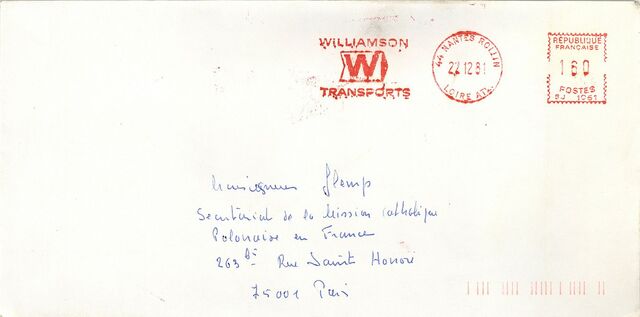 WILLIAMSON
W
TRANSPORTS
44 NANTES ROLLIN
22 12 81
LOIRE ATL.
RÉPUBLIQUE
FRANÇAISE
160
POSTES
1961
Monseigneur Glemp
Secrétariat de la Mission Catholique
Polonaise en France
263 bis Rue Saint Honoré
75001 Paris